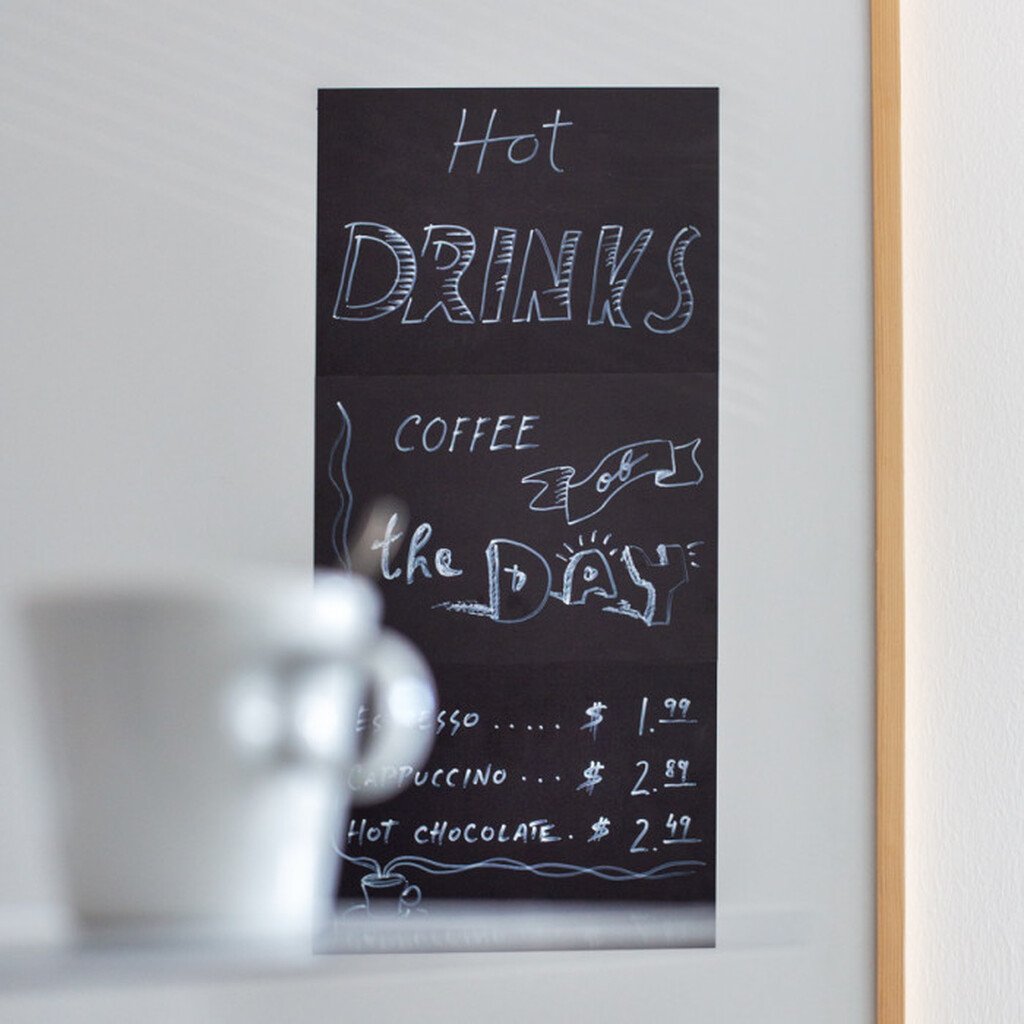 Hot
DRINKS
COFFEE
of
the DAY
ESPRESSO ..... $ 1.99
CAPPUCCINO ... $ 2.89
HOT CHOCOLATE . $ 2.49